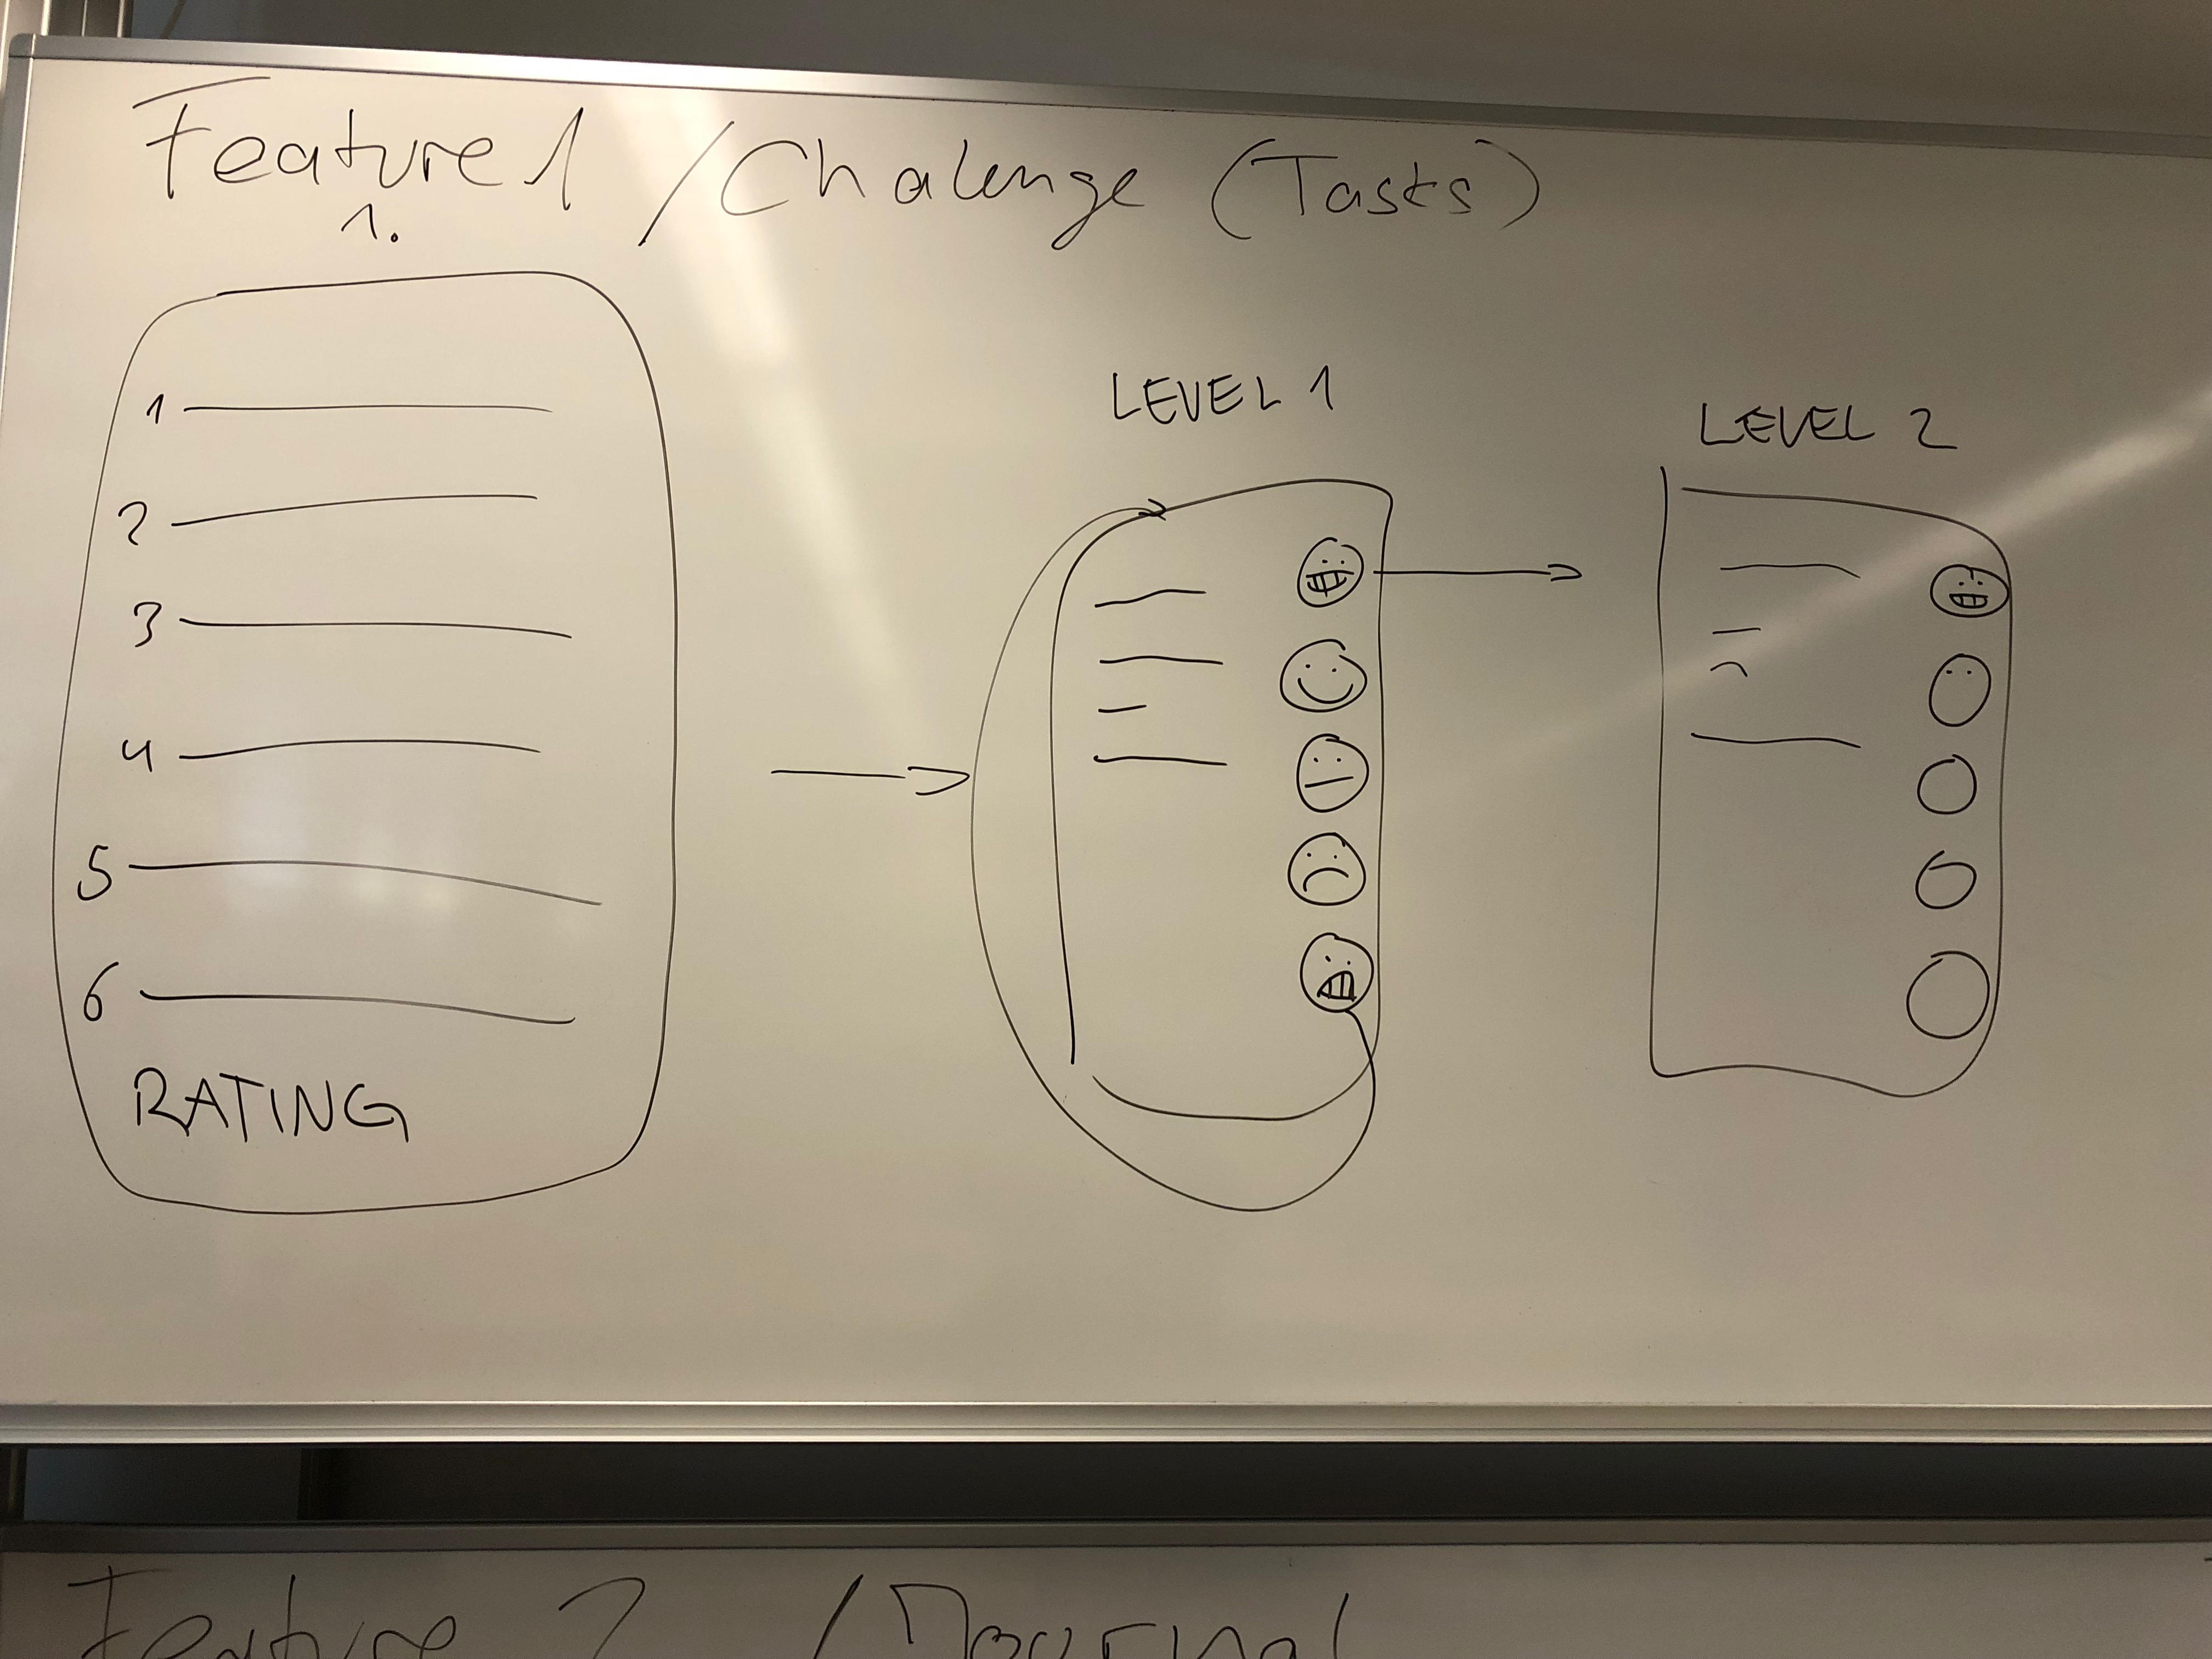 Feature 1 / Chalenge (Tasks)
1.
1
2
3
4
5
6
RATING
LEVEL 1
LEVEL 2
Feature 2 /